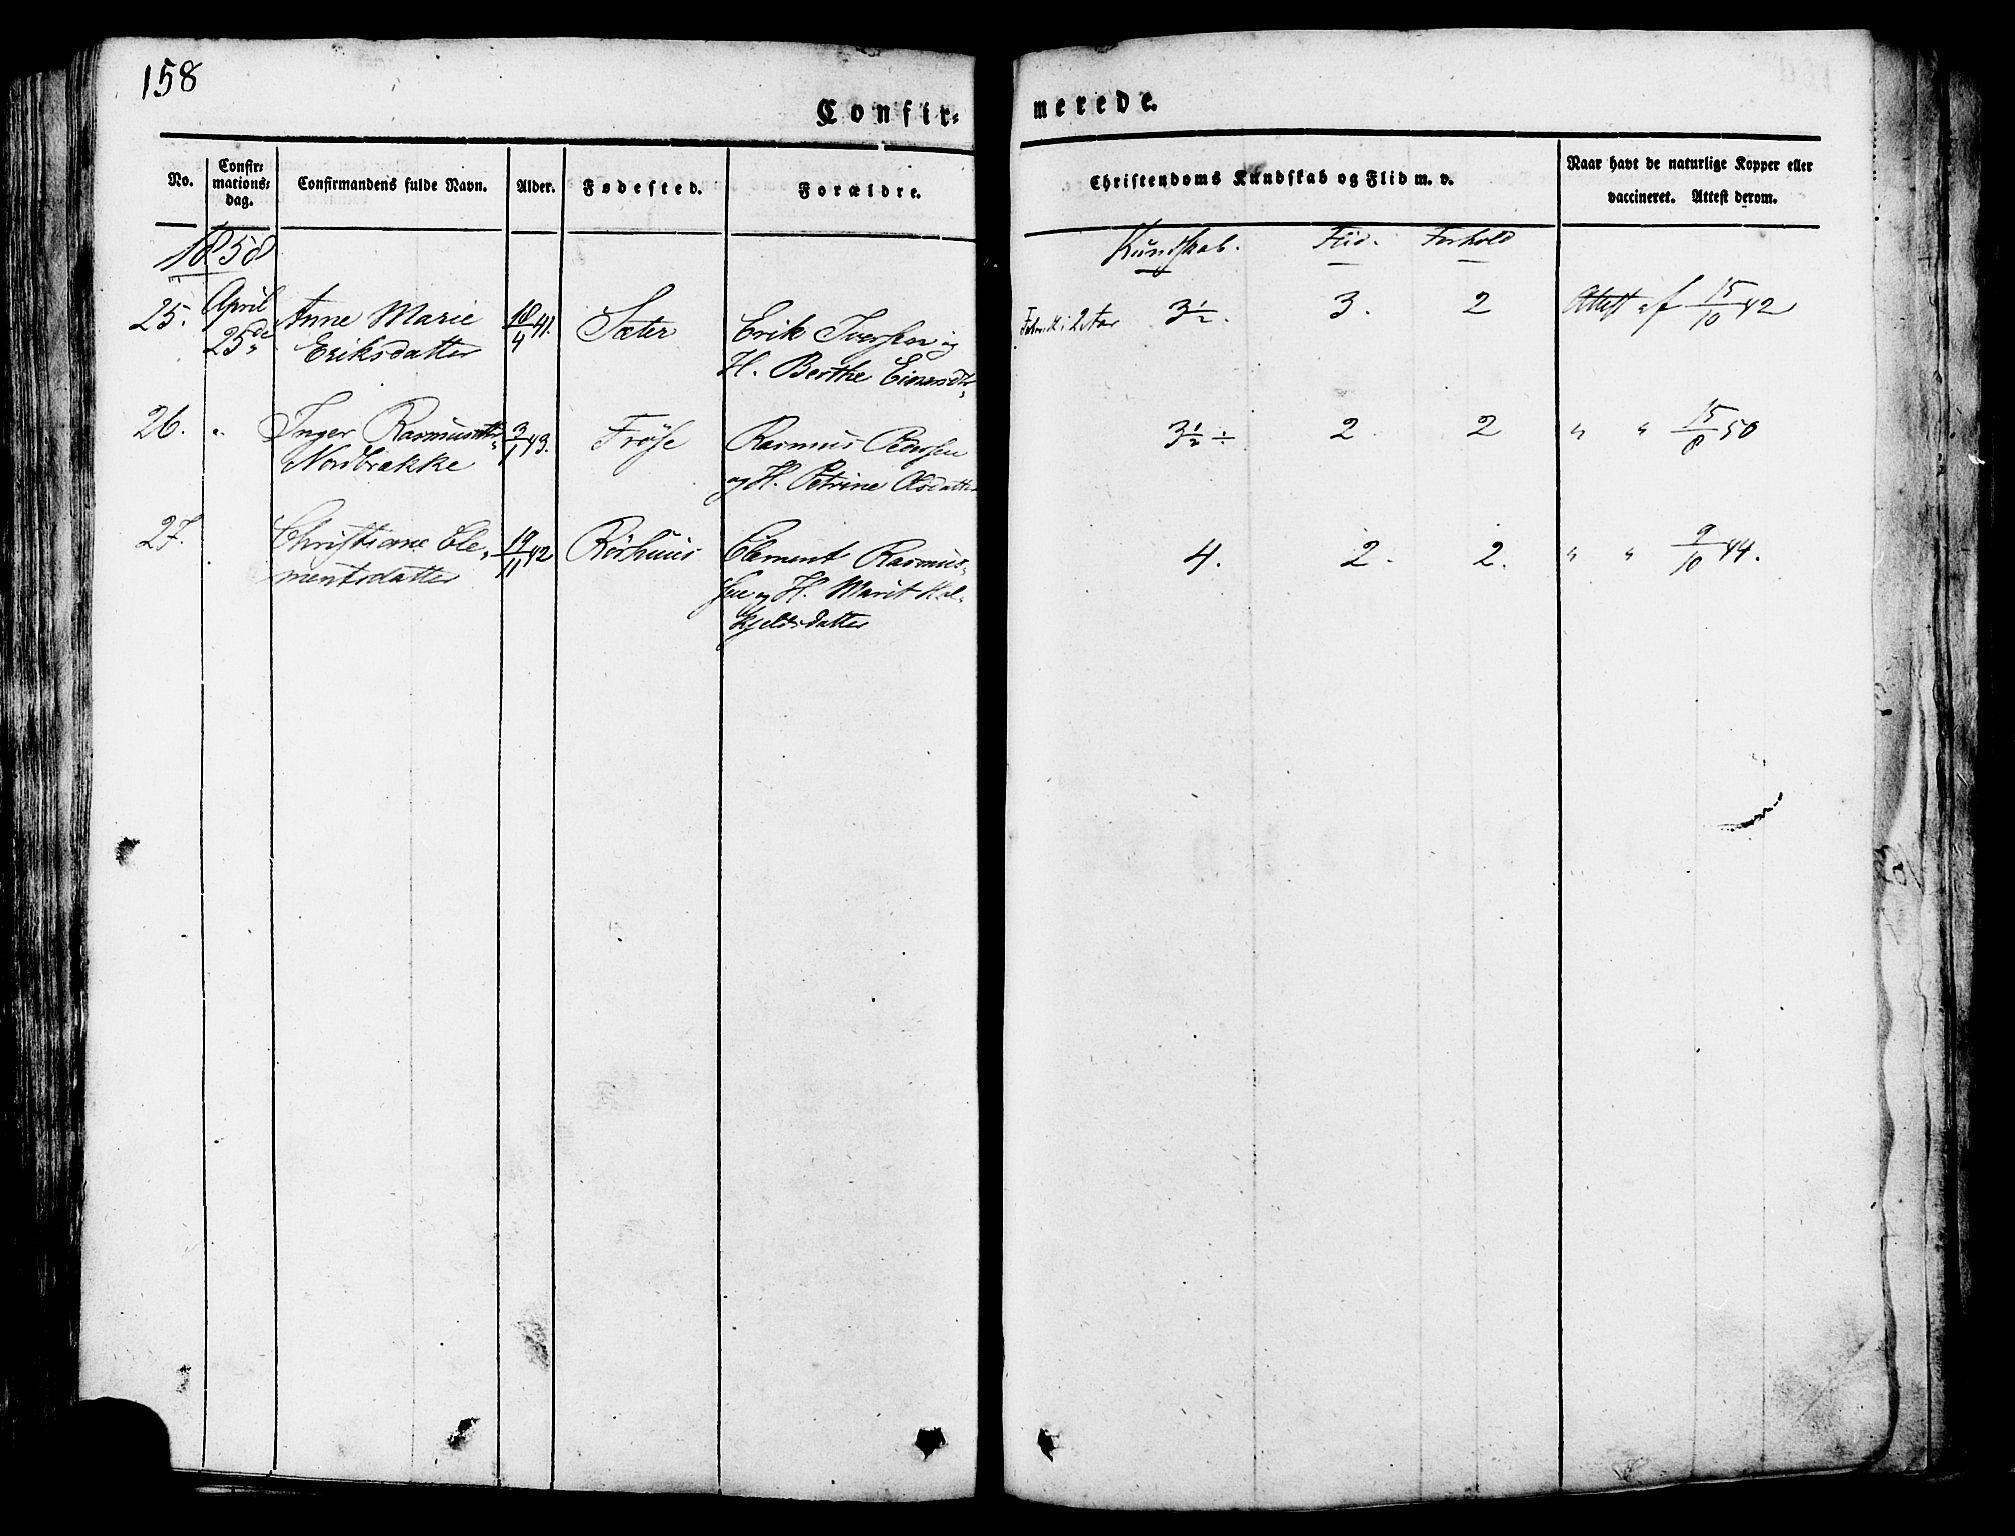 158
Confir-
merede.
No.
Confir-
mations-
dag.
Confirmandens fulde Navn.
Alder.
Fødested.
Forældre.
Christendoms Kundskab og Flid m. v.
Naar havt de naturlige Kopper eller
vaccineret. Attest derom.
1858
Kundskab.
Flid.
Forhold
25.
April
25de
Anne Marie
Eriksdatter
18/4 41.
Sæter
Erik Iversen og
H. Berthe
i 2 Aar
3½.
3.
2
Attest af 15/10 42
26.
"
Inger Rasmusdtr
Nordbrække
3/1 43.
Frøse
Rasmus Pedersen
og H. Petrine Olsdatter
3½ ÷
2
2
" " 15/8 50
27.
Christiane Cle-
mentsdatter
19/11 42
Rörhuus
Clement Rasmus-
sen og H. Marit Hal-
kjeldsdatter
4.
2.
2.
" " 9/10 44.